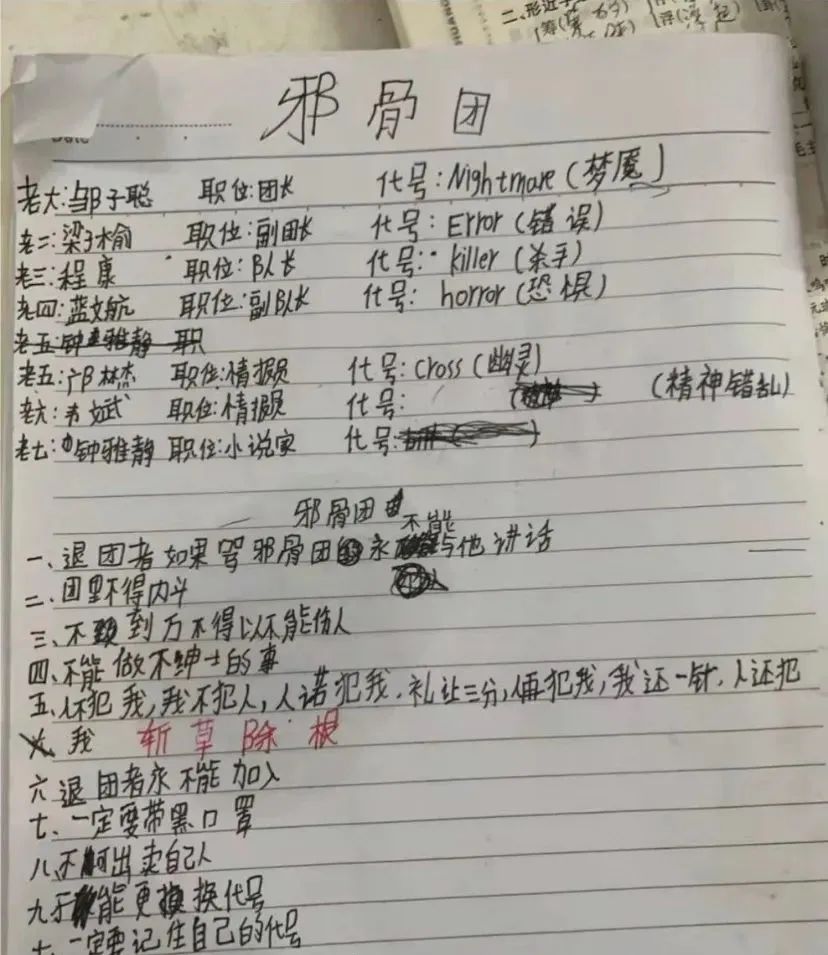 二、形近字
邪骨团
Date
老大:邹子聪 职位:团长 代号:Nightmare(梦魇)
老二:梁子榆 职位:副团长 代号:Error(错误)
老三:程康 职位:队长 代号:killer(杀手)
老四:蓝文航 职位:副队长 代号:horror(恐惧)
老五:钟雅静 职
老五:邝林杰 职位:情报员 代号:Cross(幽灵)
老六:韦斌 职位:情报员 代号: (精神错乱)
老七:钟雅静 职位:小说家 代号:
邪骨团
不能
一、退团者如果骂邪骨团永与他讲话
二、团里不得内斗
三、不到万不得以不能伤人
四、不能做不绅士的事
五、人不犯我,我不犯人,人诺犯我,礼让三分,人再犯我,我还一针,人还犯
我 斩草除根
六、退团者永不能加入
七、一定要带黑口罩
八、不可出卖自己人
九、不能更换代号
十、一定要记住自己的代号